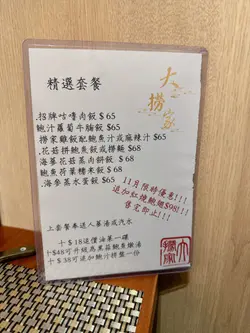 大撈家
精選套餐
.招牌咕嚕肉飯$65
鮑汁蘿蔔牛腩飯$65
撈家雞飯配鮑魚汁或麻辣汁$65
.花菇拼鮑魚飯或撈麵$68
海藻花菇蒸肉餅飯$68
鮑魚荷葉糯米飯$68
.海參蒸水蛋飯$65
11月限時優惠!!!
追加紅燒鮑翅$98!!!
售完即止!!!
上套餐奉送人蔘湯或汽水
十$18送價油菜一碟
十$48可升級為黑蒜鮑魚燉湯
十$38可追加鮑汁排盤一份